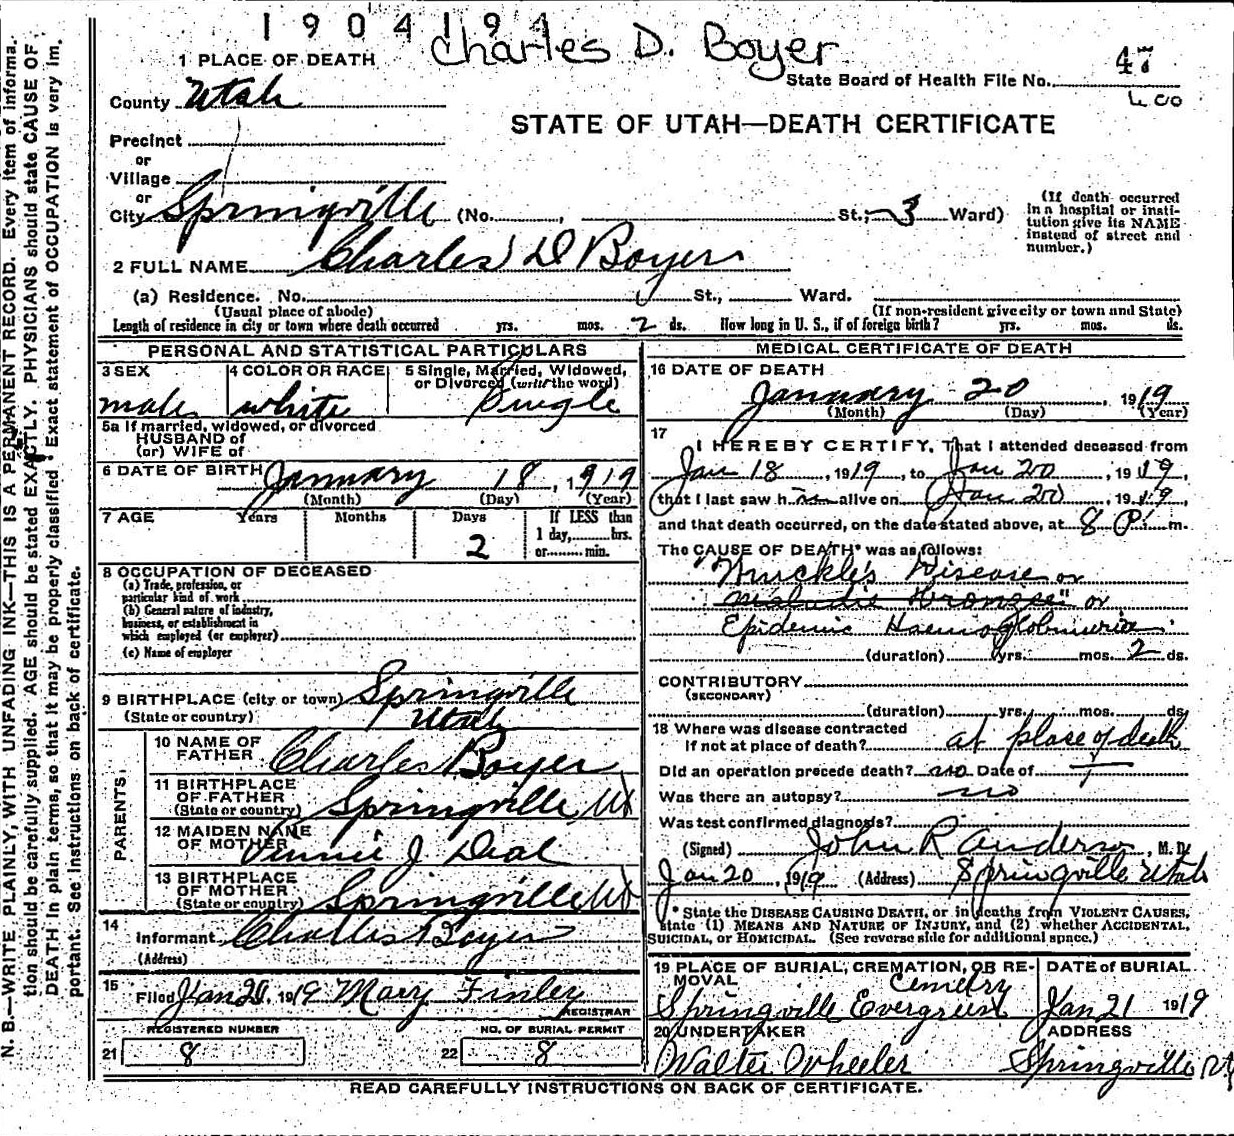 1904194
Charles D. Boyer
1 PLACE OF DEATH
State Board of Health File No. 47
County Utah
STATE OF UTAH—DEATH CERTIFICATE
Precinct
or
Village
or
City Springville (No. , St.; 3 Ward)
(If death occurred in a hospital or institution give its NAME instead of street and number.)
2 FULL NAME Charles D Boyer
(a) Residence. No. St., Ward.
(Usual place of abode) (If non-resident give city or town and State)
Length of residence in city or town where death occurred yrs. mos. 2 ds. How long in U. S., if of foreign birth? yrs. mos. ds.
PERSONAL AND STATISTICAL PARTICULARS
3 SEX 4 COLOR OR RACE 5 Single, Married, Widowed, or Divorced (write the word)
male white Single
5a If married, widowed, or divorced
HUSBAND of
(or) WIFE of
6 DATE OF BIRTH January 18, 1919
(Month) (Day) (Year)
7 AGE Years Months Days If LESS than
2 1 day, hrs.
or min.
8 OCCUPATION OF DECEASED
(a) Trade, profession, or
particular kind of work
(b) General nature of industry,
business, or establishment in
which employed (or employer)
(c) Name of employer
9 BIRTHPLACE (city or town) Springville
(State or country) Utah
PARENTS
10 NAME OF
FATHER Charles Boyer
11 BIRTHPLACE
OF FATHER
(State or country) Springville, Ut
12 MAIDEN NAME
OF MOTHER Vinnie J Deal
13 BIRTHPLACE
OF MOTHER
(State or country) Springville Ut
14
Informant Charles Boyer
(Address)
15
Filed Jan 20, 1919 Mary Finley
REGISTRAR
REGISTERED NUMBER NO. OF BURIAL PERMIT
21 8 22 8
MEDICAL CERTIFICATE OF DEATH
16 DATE OF DEATH
January 20, 1919
(Month) (Day) (Year)
17
I HEREBY CERTIFY, That I attended deceased from
Jan 18, 1919, to Jan 20, 1919,
that I last saw him alive on Jan 20, 1919
and that death occurred, on the date stated above, at 8 P. m.
The CAUSE OF DEATH* was as follows:
"Winckle's Disease or
Maladie Bronzee" or
Epidemic Haemoglobinuria
(duration) yrs. mos. 2 ds.
CONTRIBUTORY
(SECONDARY)
(duration) yrs. mos. ds.
18 Where was disease contracted
if not at place of death? at place of death
Did an operation precede death? no Date of
Was there an autopsy? no
Was test confirmed diagnosis?
(Signed) John R Anderson, M. D.
Jan 20, 1919 (Address) Springville Utah
* State the DISEASE CAUSING DEATH, or in deaths from VIOLENT CAUSES,
state (1) MEANS AND NATURE OF INJURY, and (2) whether ACCIDENTAL,
SUICIDAL, or HOMICIDAL. (See reverse side for additional space.)
19 PLACE OF BURIAL, CREMATION, OR REMOVAL DATE of BURIAL
Cemetry
Springville Evergreen Jan 21 1919
20 UNDERTAKER ADDRESS
Walter Wheeler Springville Ut
READ CAREFULLY INSTRUCTIONS ON BACK OF CERTIFICATE.
N. B.—WRITE PLAINLY, WITH UNFADING INK—THIS IS A PERMANENT RECORD. Every item of informa-
tion should be carefully supplied. AGE should be stated EXACTLY. PHYSICIANS should state CAUSE OF
DEATH in plain terms, so that it may be properly classified. Exact statement of OCCUPATION is very im-
portant. See instructions on back of certificate.